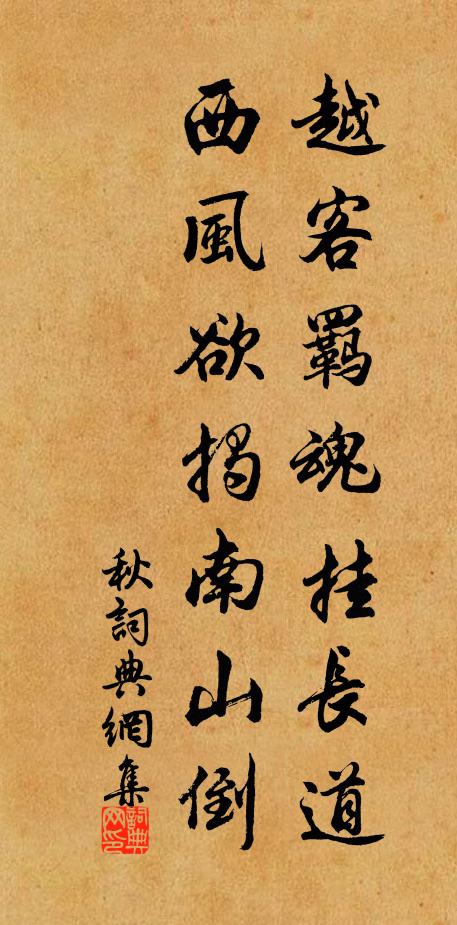 越客羈魂挂長道
西風欲揭南山倒
秋詞典網集
詞典網印